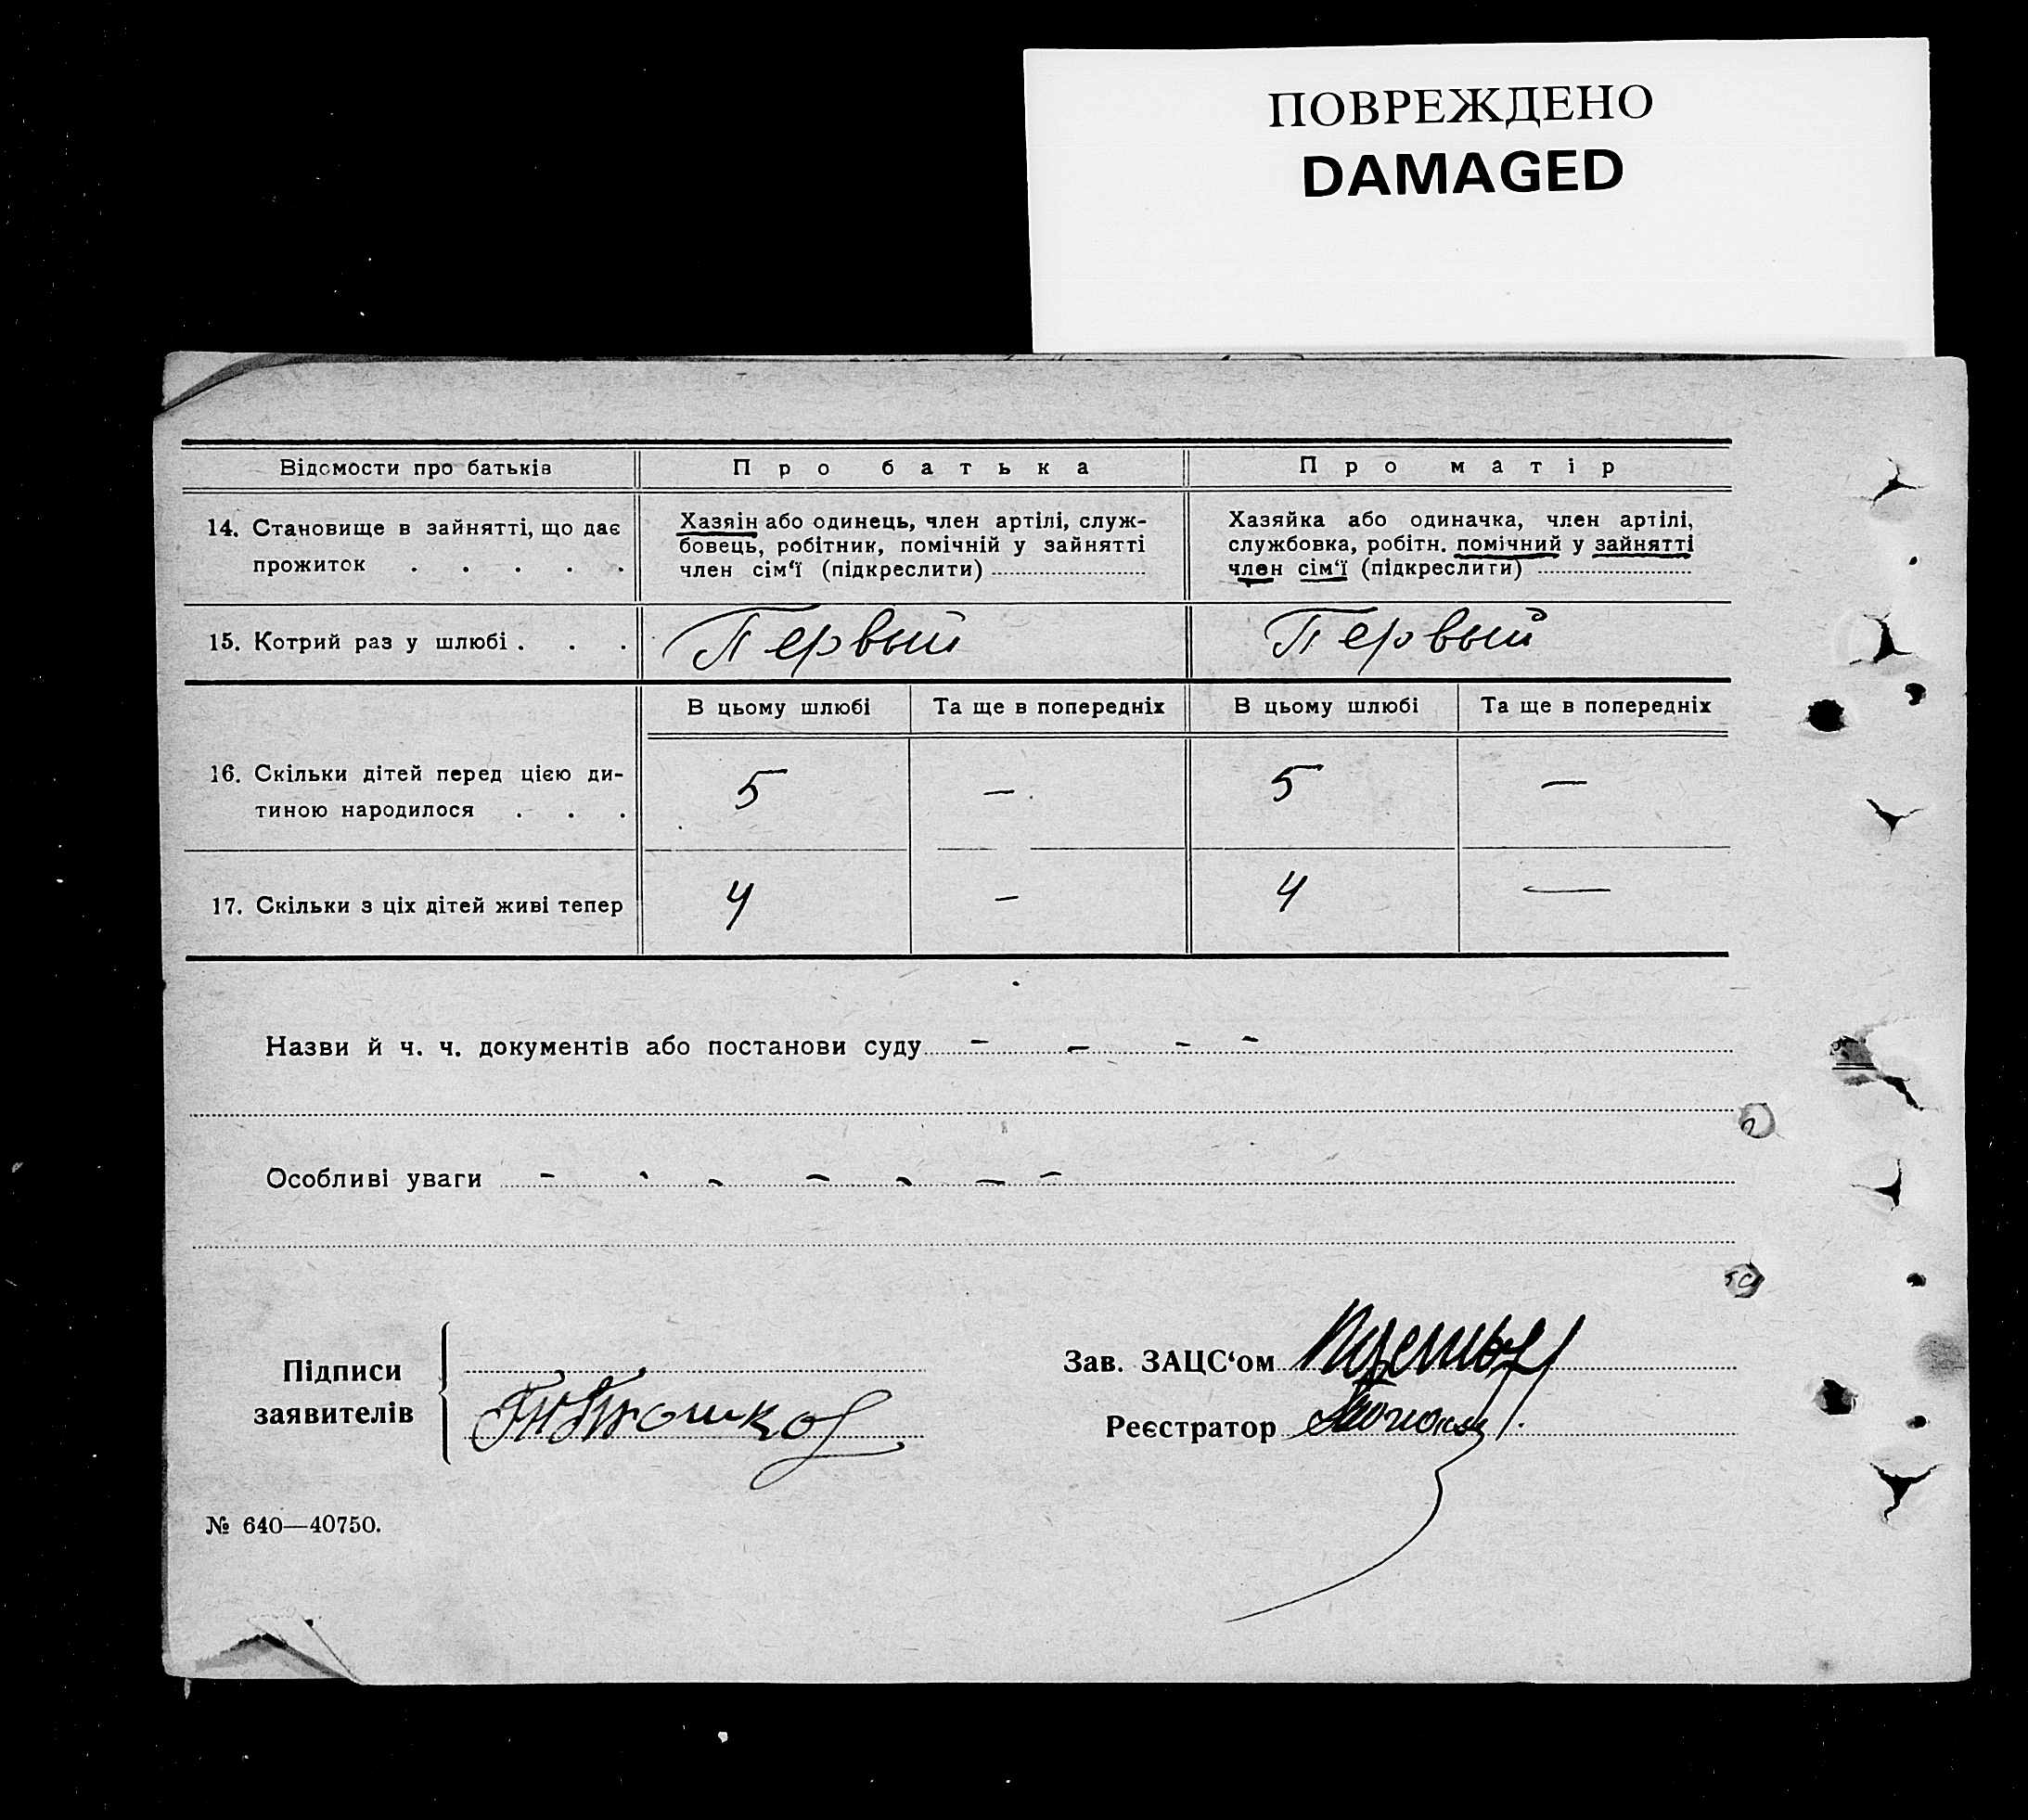 ПОВРЕЖДЕНО
DAMAGED
Відомости про батьків
Про батька
Про матір
14. Становище в зайнятті, що дає
прожиток . . . . .
Хазяін або одинець, член артілі, служ-
бовець, робітник, помічній у зайнятті
член сім‘ї (підкреслити)
Хазяйка або одиначка, член артілі,
службовка, робітн. помічний у зайнятті
член сім‘ї (підкреслити)
15. Котрий раз у шлюбі . . .
Первый
Первый
В цьому шлюбі
Та ще в попередніх
В цьому шлюбі
Та ще в попередніх
16. Скільки дітей перед цією ди-
тиною народилося . . .
5
—
5
—
17. Скільки з ціх дітей живі тепер
4
—
4
—
Назви й ч. ч. документів або постанови суду – – – –
Особливі уваги – – – – – – –
Підписи
заявителів
Зав. ЗАЦС‘ом
Реєстратор
№ 640—40750.